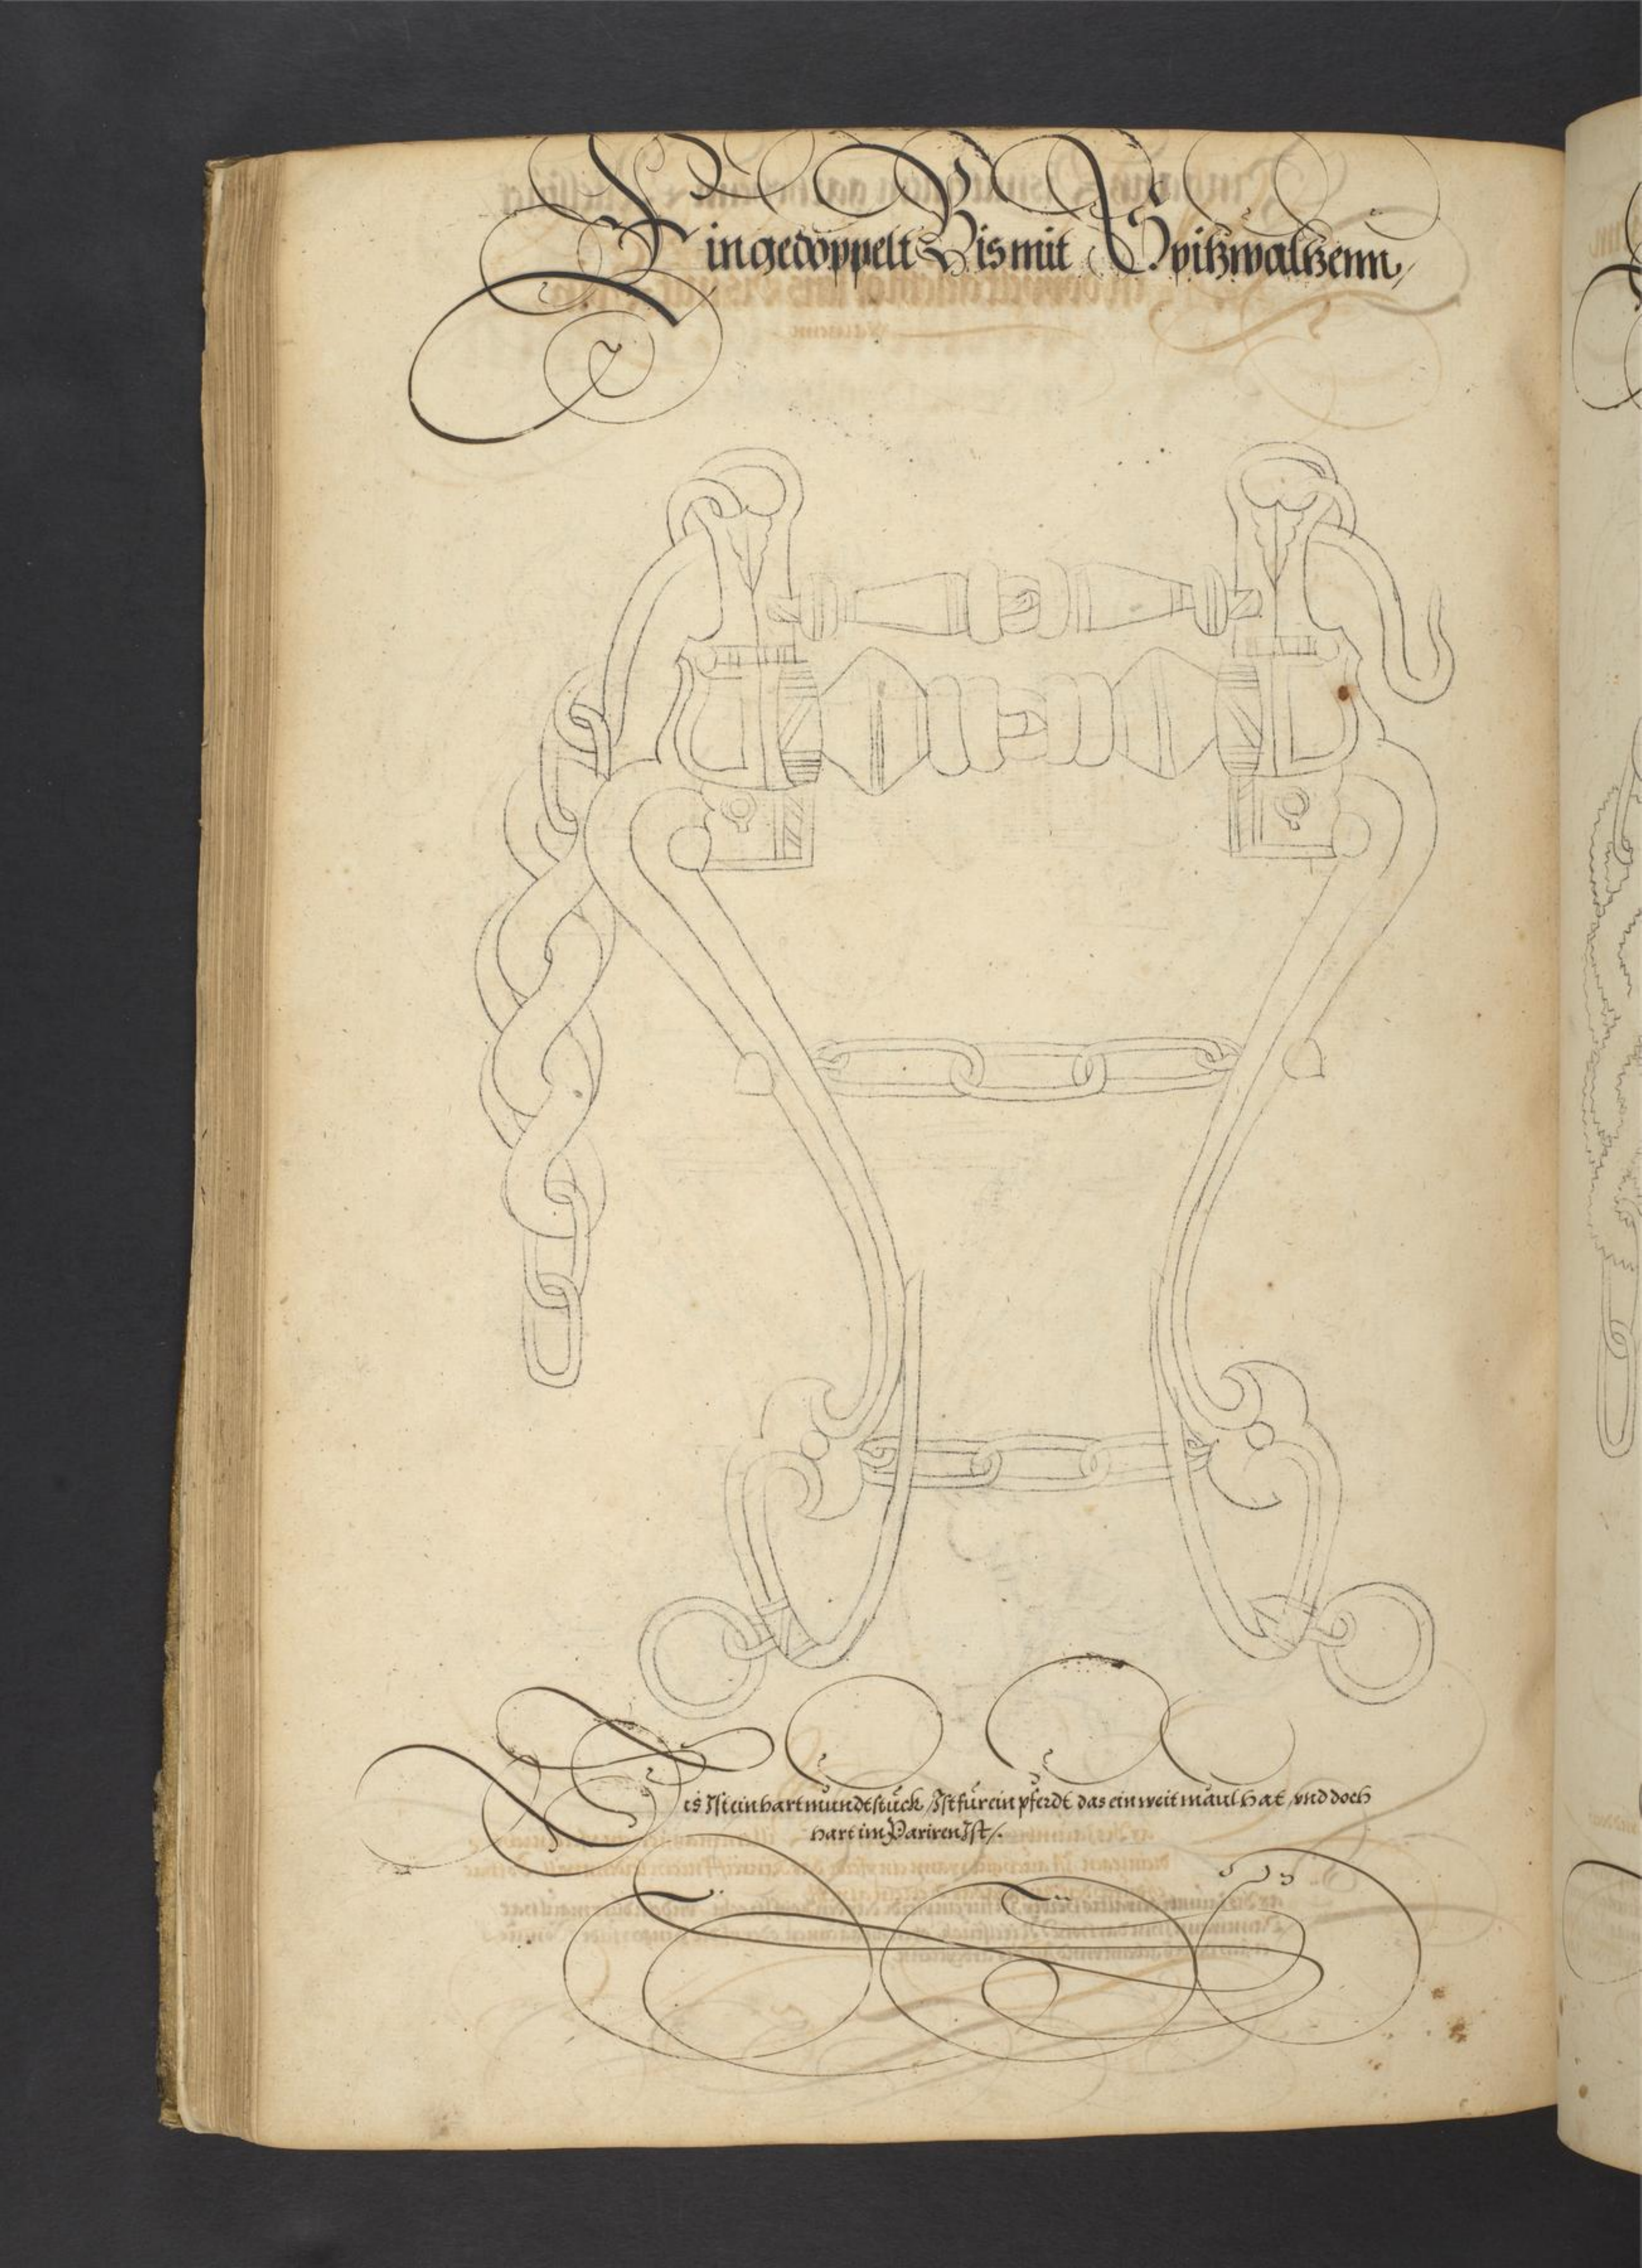 Ein gedoppelt Bis mit Spitzwaltzenn,
Dis Ist ein hart mundtstuck / Ist fur ein pferdt das ein weit maul hat / vnd doch
hart im Pariren Ist /.